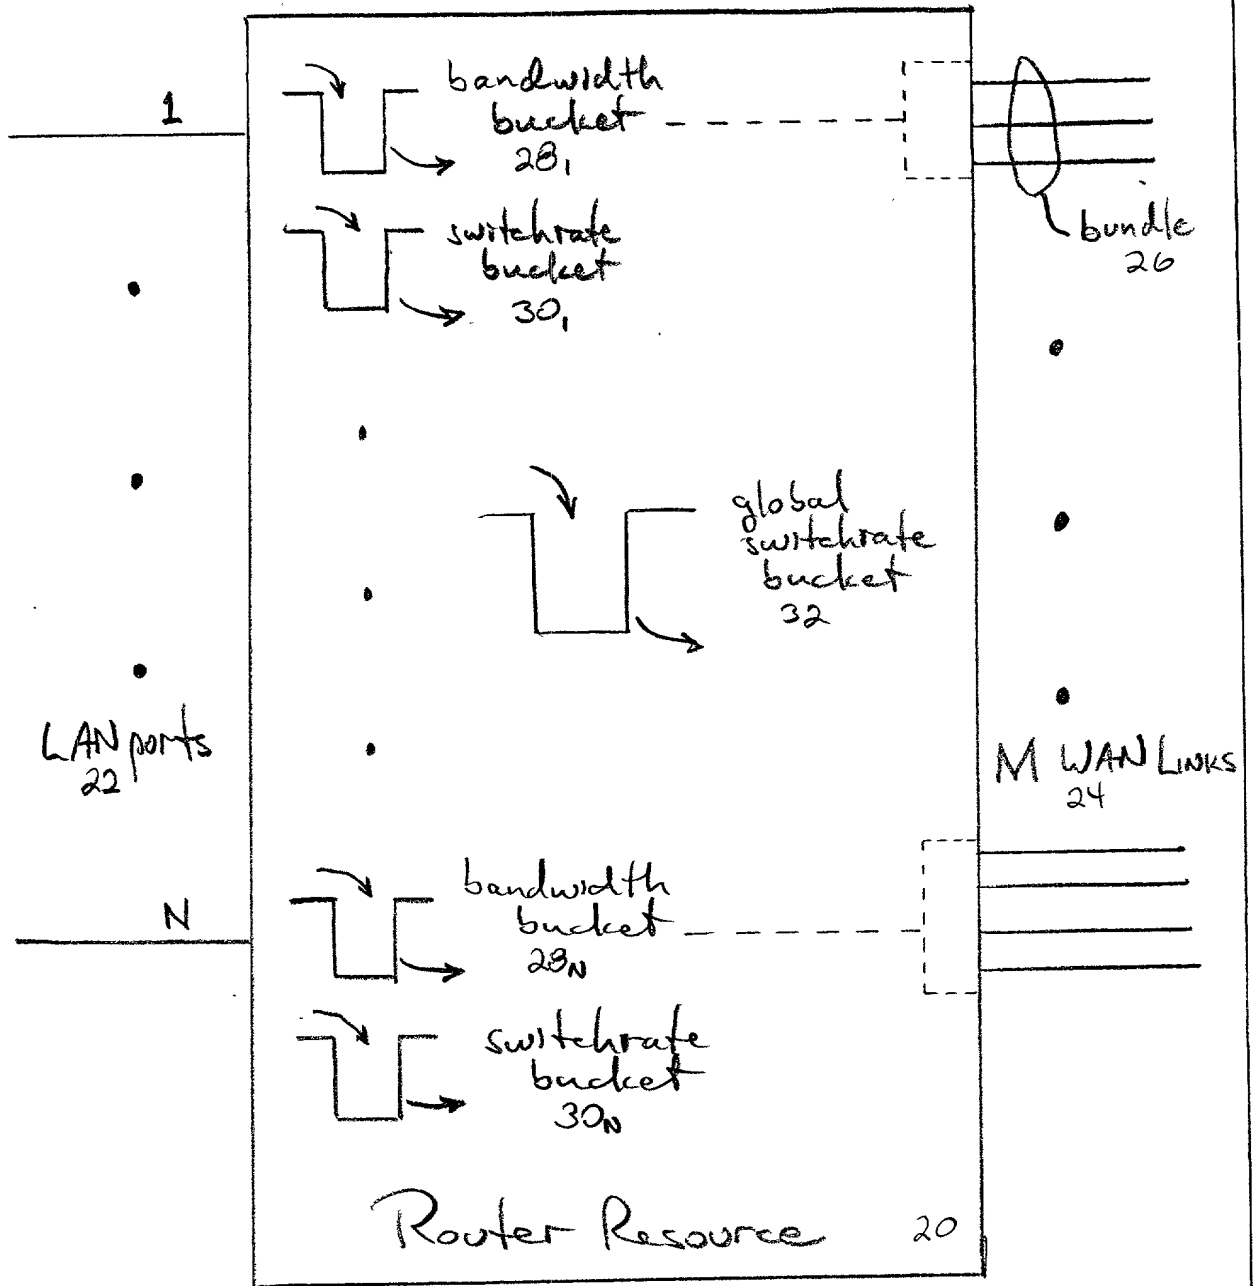 1
bandwidth
bucket
28₁
switchrate
bucket
30₁
bundle
26
global
switchrate
bucket
32
LAN ports
22
M WAN LINKS
24
N
bandwidth
bucket
28N
switchrate
bucket
30N
Router Resource 20